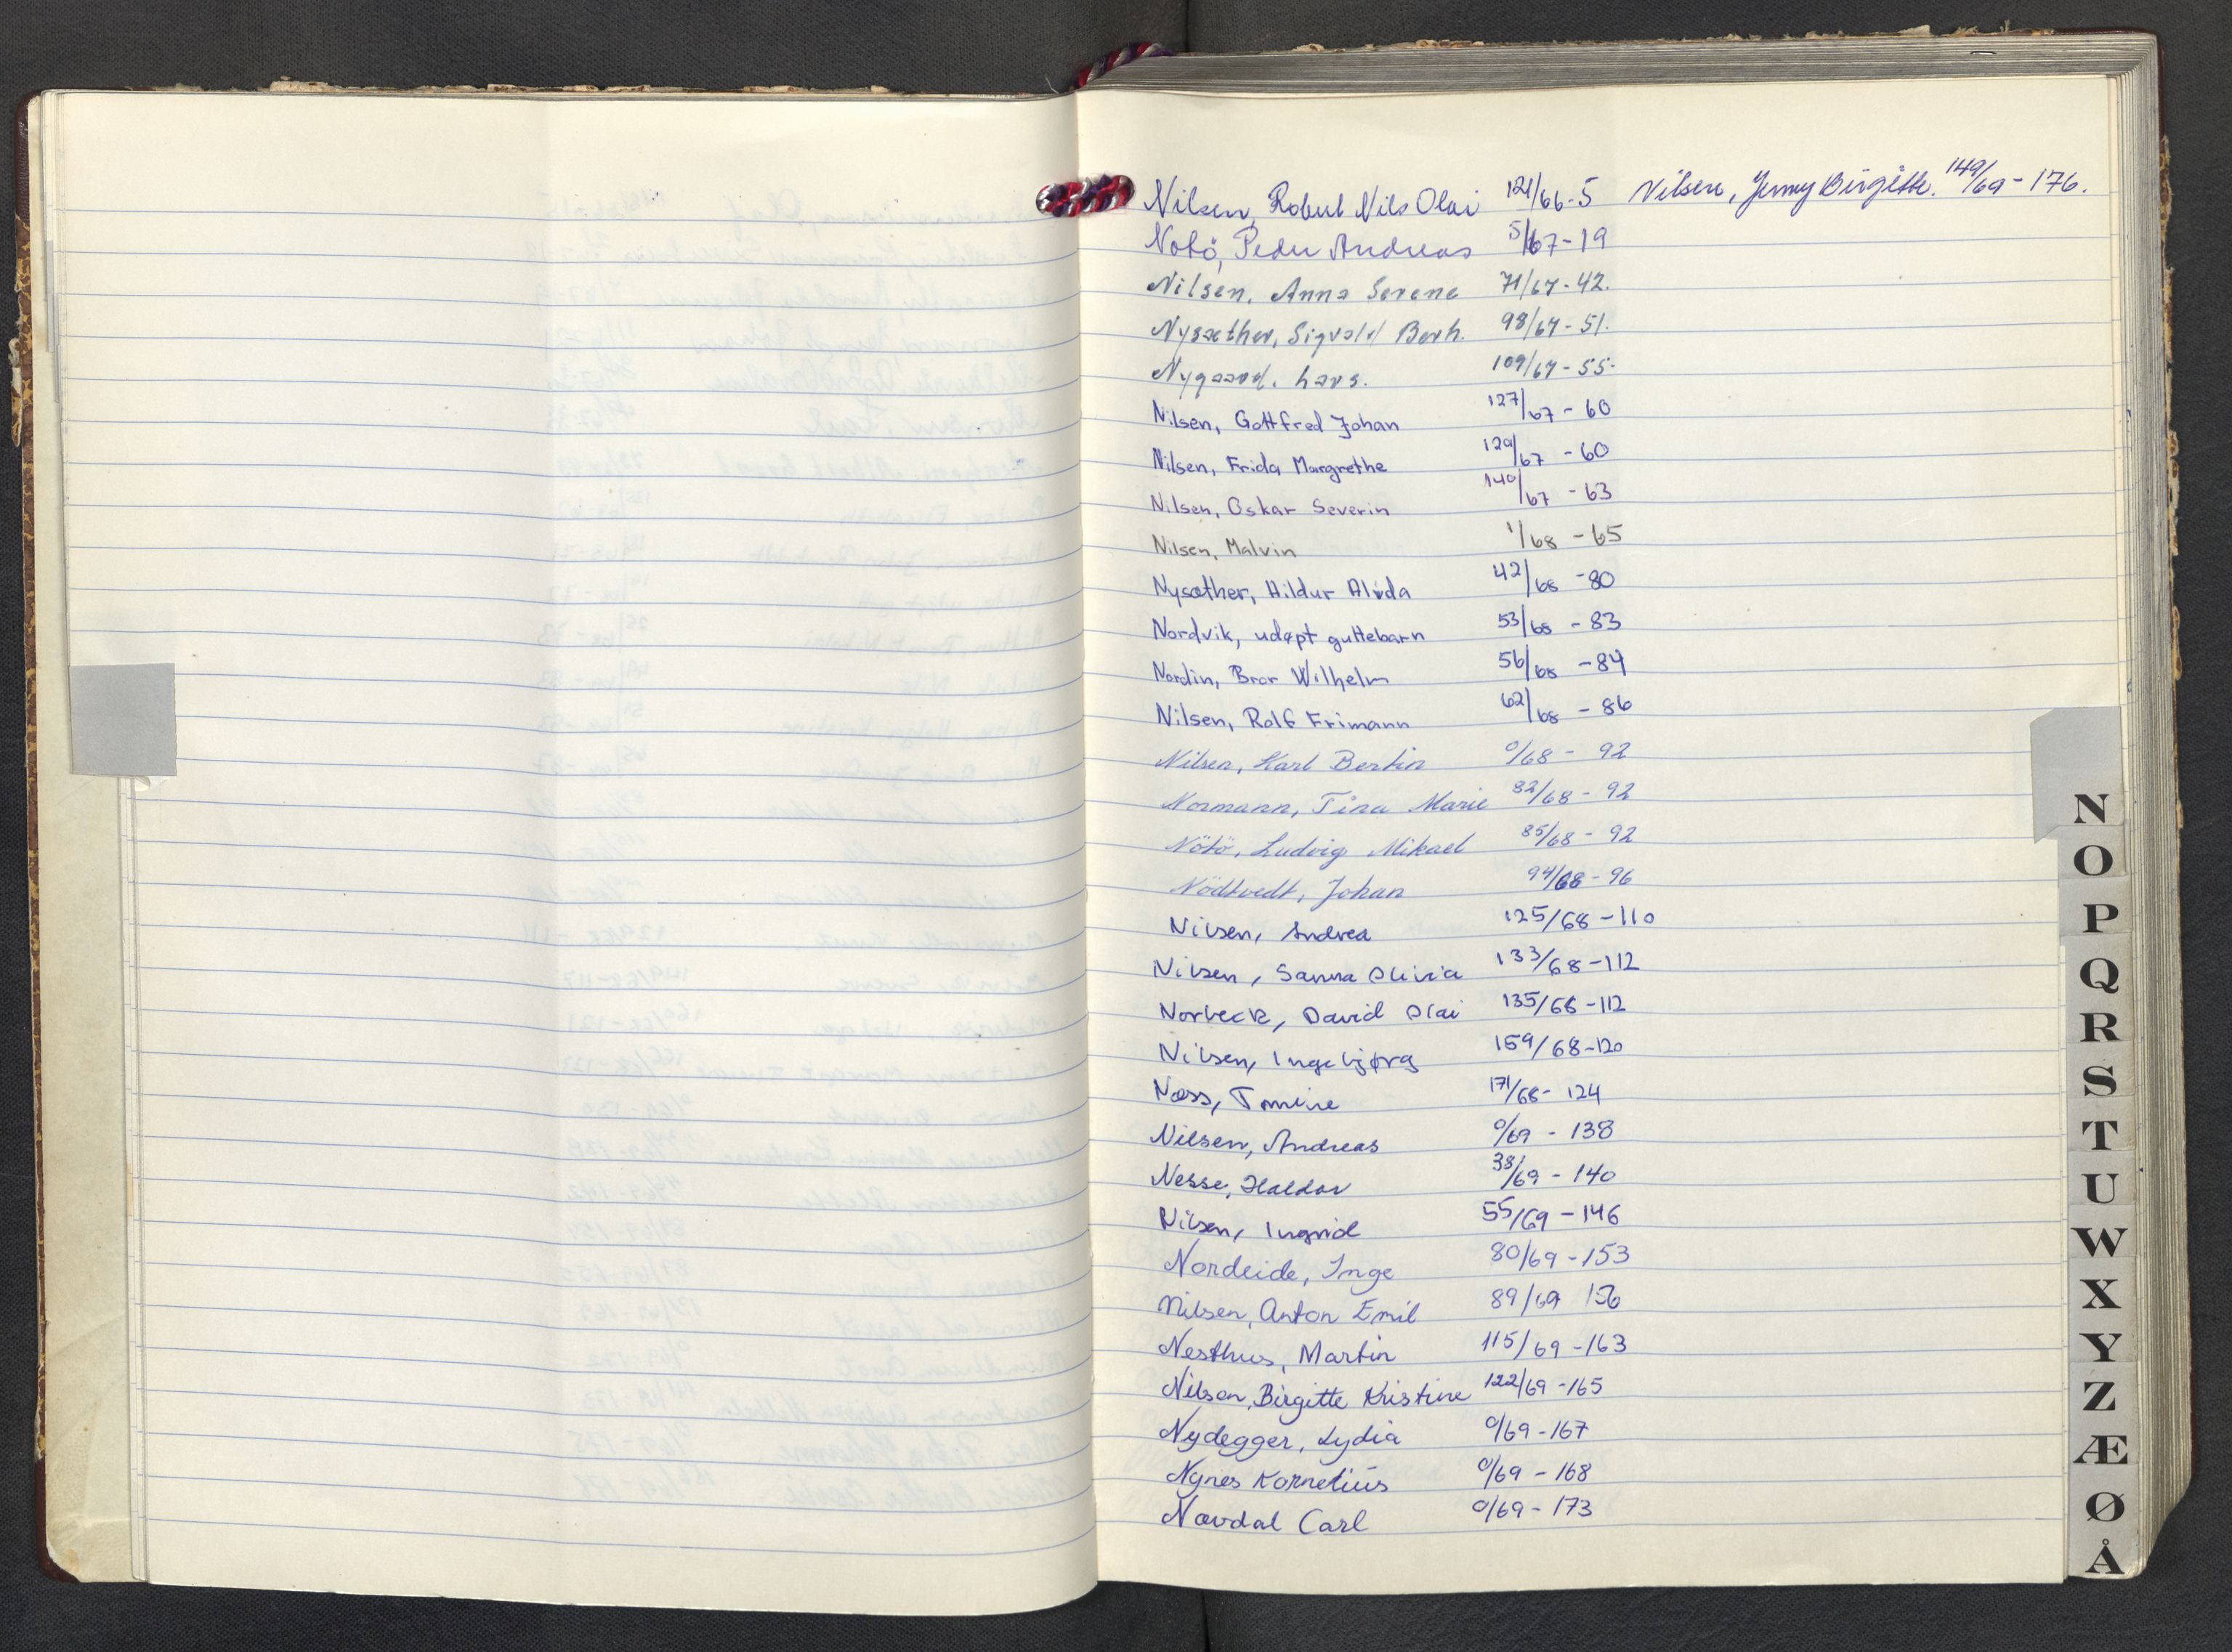 Nilsen, Robert Nils Olai 121/66-5 Nilsen, Jenny Birgitte. 149/69-176.
Notö, Peder Andreas 5/67-19
Nilsen, Anna Serene 71/67-42.
Nysæther, Sigvald Berh. 98/67-51.
Nygaard, Lars. 109/67-55-
Nilsen, Gottfred Johan 127/67-60
Nilsen, Frida Margrethe 129/67-60
Nilsen, Oskar Severin 140/67-63
Nilsen, Malvin 1/68-65
Nysæther, Hildur Alida 42/68-80
Nordvik, udøpt guttebarn 53/68-83
Nordin, Bror Wilhelm 56/68-84
Nilsen, Rolf Frimann 62/68-86
Nilsen, Karl Bertin 0/68-92
Normann, Tina Marie 82/68-92
Nötö, Ludvig Mikael 85/68-92
Nödtvedt, Johan 94/68-96
Nilsen, Andrea 125/68-110
Nilsen, Sanna Olivia 133/68-112
Norbeck, David Olai 135/68-112
Nilsen, Ingebjørg 159/68-120
Næss, Tomine 171/68-124
Nilsen, Andreas 0/69-138
Nesse, Haldor 38/69-140
Nilsen, Ingrid 55/69-146
Nordeide, Inge 80/69-153
Nilsen, Anton Emil 89/69 156
Nesthus, Martin 115/69-163
Nilsen, Birgitte Kristine 122/69-165
Nydegger, Lydia 0/69-167
Nynes Kornelius 0/69-168
Nævdal Carl 0/69-173
N
O
P
Q
R
S
T
U
W
X
Y
Z
Æ
Ø
Å